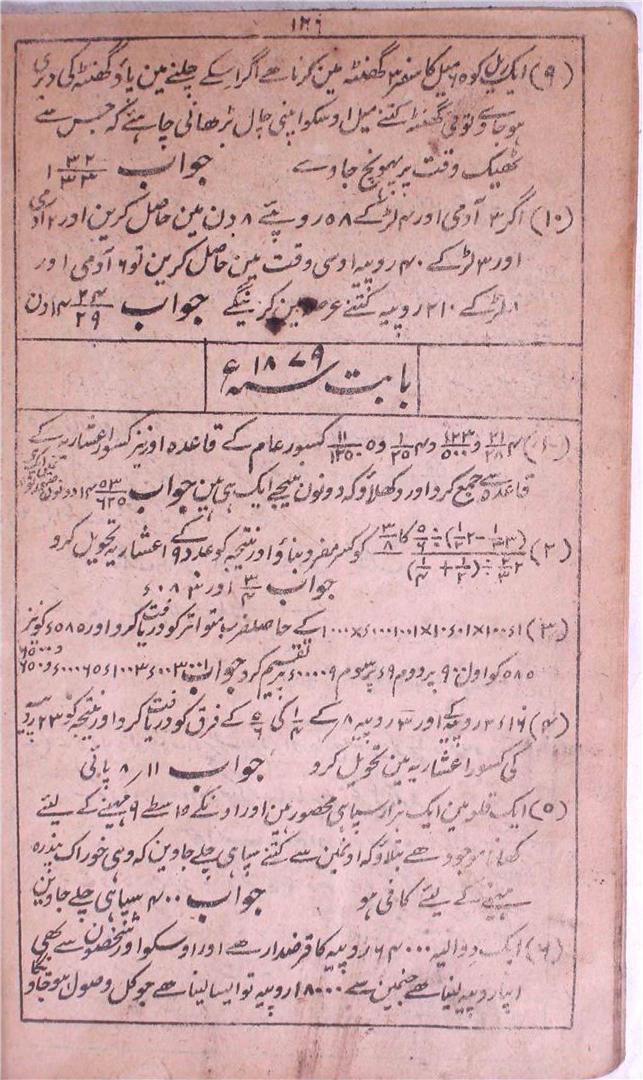 ۱۲۹
(۹) ایک ریل کو ۶۵ میل کا سفر ۳ گھنٹہ مین کرنا ھے اگر اسکے چلنے مین پاؤ گھنٹہ کی دیری
ہو جاوے تو فی گھنٹہ کتنے میل اوسکو اپنی چال بڑھانی چاہئے کہ جس سے
ٹھیک وقت پر پہونچ جاوے جواب ۱ ۳۲/۳۳
(۱۰) اگر ۳ آدمی اور ۴ لڑکے ۵۸ روپئے ۸ دن مین حاصل کرین اور ۲ آدمی
اور ۳ لڑکے ۴۰ روپیہ اوسی وقت مین حاصل کرین تو ۶ آدمی اور
۸ لڑکے ۲۱۰ روپیہ کتنے عرصہ مین کرینگے جواب ۱۴ ۲۴/۲۹ دن
بابت سنہ ۱۸۷۹ ء
(۱) ۴ ۲۱/۲۸ و ۴۲۳/۵۰۰ و ۴ ۱/۲۵ و ۵ ۱۱/۱۲۵۰ کسور عام کے قاعدہ اور نیز کسور اعشاریہ کے
قاعدہ سے جمع کرو اور دکھلاؤ کہ دونون نتیجے ایک ہی مین جواب ۱۴ ۵۳/۶۲۵
(۲) ۳/۸ کا ۵/۶ کو کسر مفرد بناؤ اور نتیجہ کو عدد ۹ کے اعشاریہ تحویل کرو
جواب ۳/۴ اور ۰۸۳ء
(۳) کے حاصلضرب متواتر کو دریافت کرو اور ۵۸۵ء کو نیز
۵۸۵ کو اول ۹۰ پر دوم ۹ء پر سوم ۰۰۰۰۹ء پر تقسیم کرو جواب
(۴) ۲ء۱۶ روپیہ کے اور ۳ روپیہ ۸/ کے ۱/۴ کی ۵/۶ کے فرق کو دریافت کرو اور نتیجہ کو ۲۳ روپیہ
کی کسور اعشاریہ مین تحویل کرو جواب ۱۱/ ۸ پائی
(۵) ایک قلعہ مین ایک ہزار سپاہی محصور مین اور اونکے واسطے ۹ مہینے کے لیئے
کھانا موجود ھے بتلاؤ کہ اونمین سے کتنے سپاہی چلے جاوین کہ وہی خوراک پندرہ
مہینے کے لیئے کافی ہو جواب ۴۰۰ سپاہی چلے جاوین
(۶) ایک دوالیہ ۶۴۰۰۰ روپیہ کا قرضدار ھے اور اوسکو اور شخصون سے بھی
اپنا روپیہ لینا ھے جنمین سے ۱۸۰۰۰ روپیہ تو ایسا لینا ھے جو کل وصول ہو جاویگا